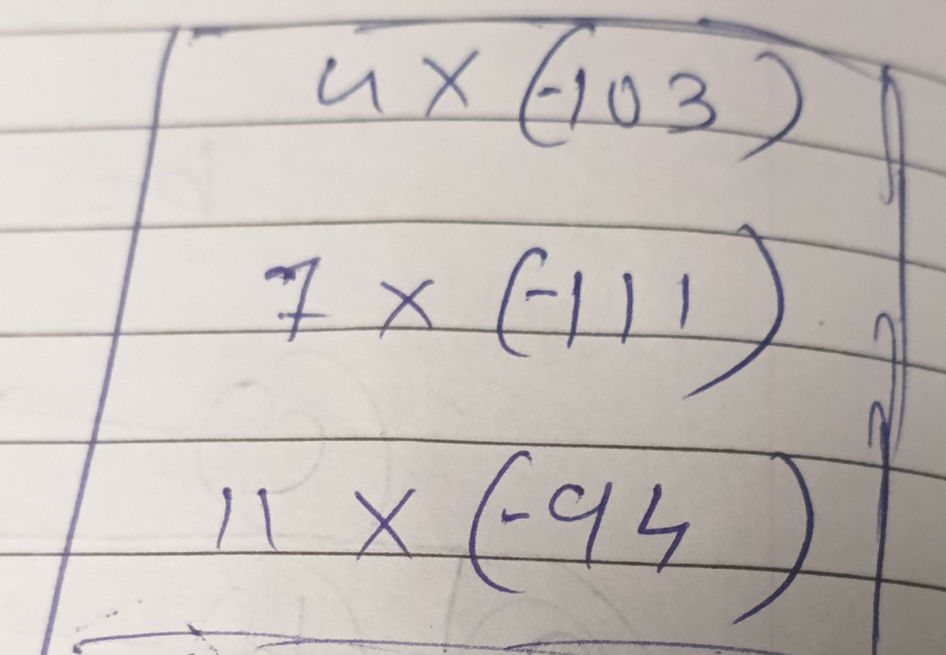 4 × (-103)
7 × (-111)
11 × (-94)